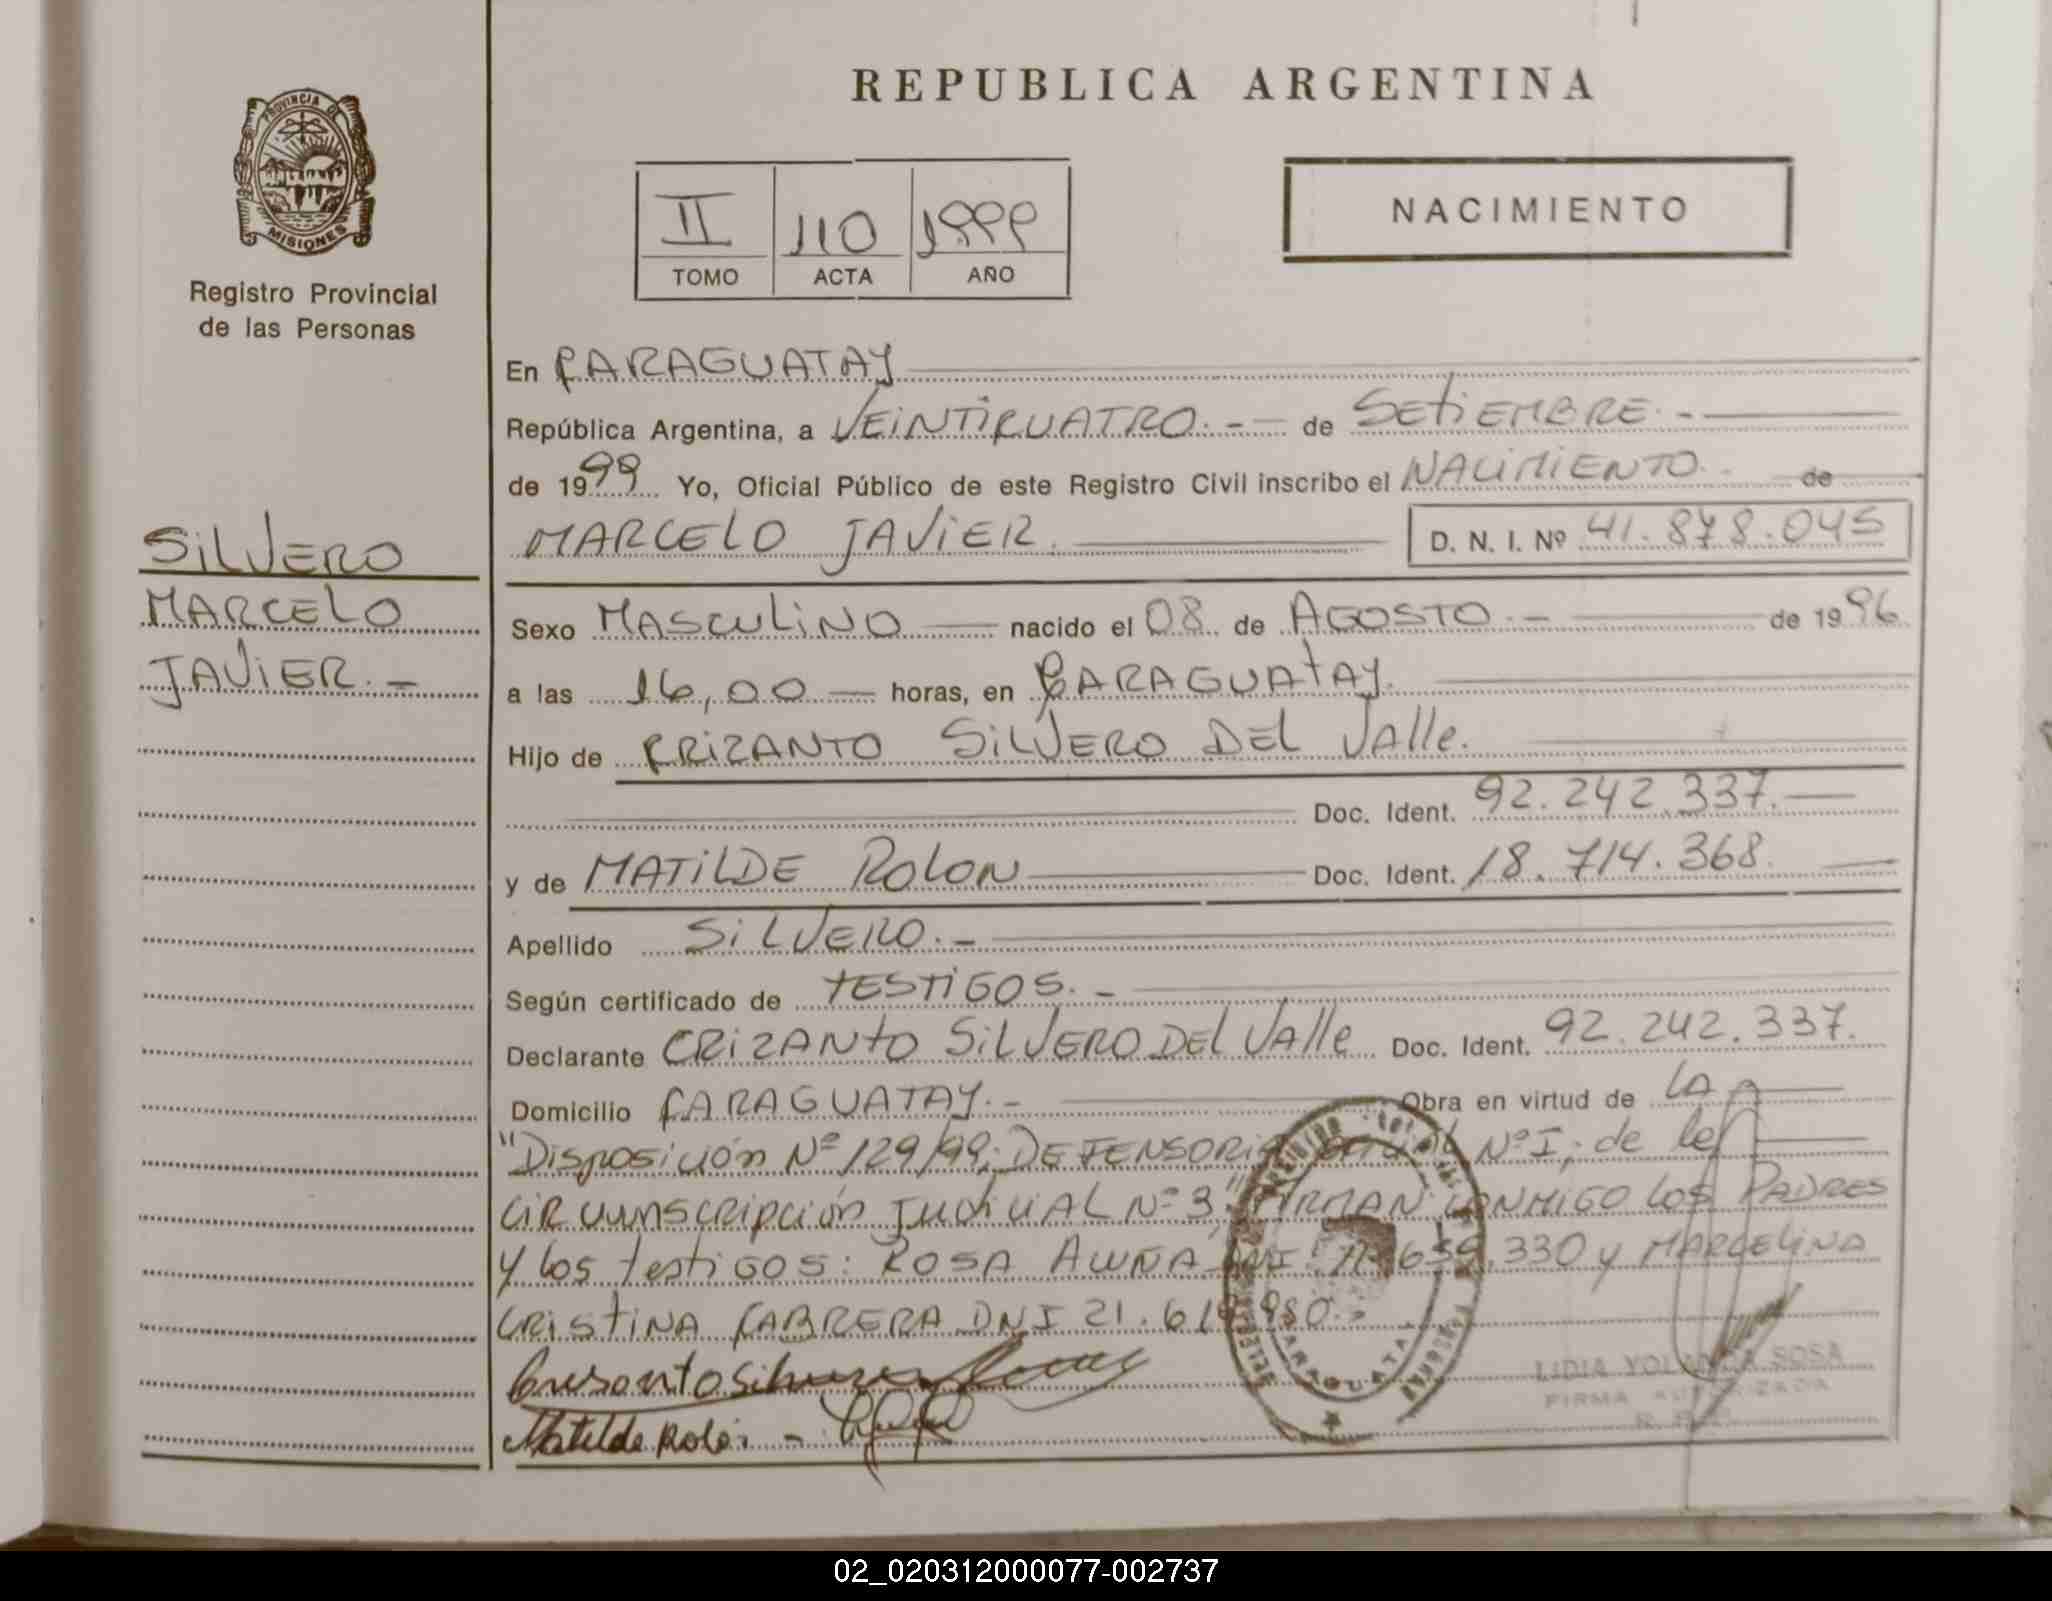 REPUBLICA ARGENTINA
PROVINCIA DE
MISIONES
Registro Provincial
de las Personas
II 110 1999
TOMO ACTA AÑO
NACIMIENTO
SILVERO
MARCELO
JAVIER.-
En CARAGUATAY
República Argentina, a VEINTICUATRO.- de SETIEMBRE.-
de 1999 Yo, Oficial Público de este Registro Civil inscribo el NACIMIENTO. de
MARCELO JAVIER. D. N. I. Nº 41.878.045
Sexo MASCULINO nacido el 08 de AGOSTO.- de 1996
a las 16,00 horas, en CARAGUATAY.
Hijo de CRIZANTO SILVERO DEL VAlle.
Doc. Ident. 92.242.337.
y de MATILDE ROLON Doc. Ident. 18.714.368.
Apellido SILVERO.-
Según certificado de TESTIGOS.-
Declarante CRIZANTO SILVERO DEL VAlle Doc. Ident. 92.242.337.
Domicilio CARAGUATAY.- Obra en virtud de LA
"Disposición Nº 129/99; DEFENSORIA Nº I; de la
CIRcunscripción JudiciAL Nº 3", FIRMAN CONMIGO LOS PADRES
Y los testiGOS: ROSA ACUÑA DNI 659.330 y MARCELINA
CRISTINA CABRERA DNI 21.619.980.-
Matilde Rolón
LIDIA YOLANDA SOSA
FIRMA AUTORIZADA
02_020312000077-002737